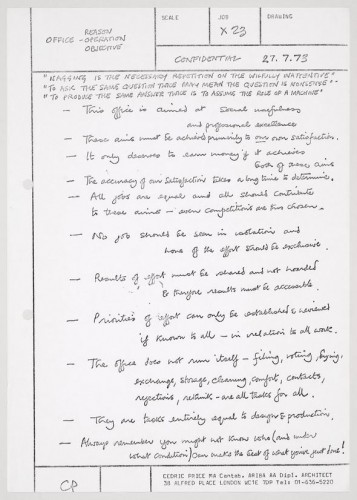 REASON
OFFICE - OPERATION
OBJECTIVE
SCALE
JOB
X 23
DRAWING
CONFIDENTIAL
27.7.73
"NAGGING IS THE NECESSARY REPETITION ON THE WILFULLY INATTENTIVE"
"TO ASK THE SAME QUESTION TWICE MAY MEAN THE QUESTION IS NONSENSE"
"TO PRODUCE THE SAME ANSWER TWICE IS TO ASSUME THE ROLE OF A MACHINE"
— This office is aimed at social usefulness
and professional excellence
— These aims must be achieved primarily to our own satisfaction.
— It only deserves to earn money if it achieves
both of these aims
— The accuracy of our satisfaction takes a long time to determine.
— All jobs are equal and all should contribute
to these aims – even competitions are thus chosen.
— No job should be seen in isolation and
none of the effort should be exclusive.
— Results of effort must be shared and not hoarded
& therefore results must be accessible.
— Priorities of effort can only be established & reviewed
if known to all – in relation to all work.
— The office does not run itself – filing, noting, buying,
exchange, storage, cleaning, comfort, contacts,
rejections, rethinks – are all tasks for all.
— They are tasks entirely equal to design & production.
— Always remember you might not know who (and under
what condition) can make the best of what you've just done!
CP
CEDRIC PRICE MA Cantab. ARIBA AA Dipl. ARCHITECT
38 ALFRED PLACE LONDON WC1E 7DP Tel: 01-636-5220